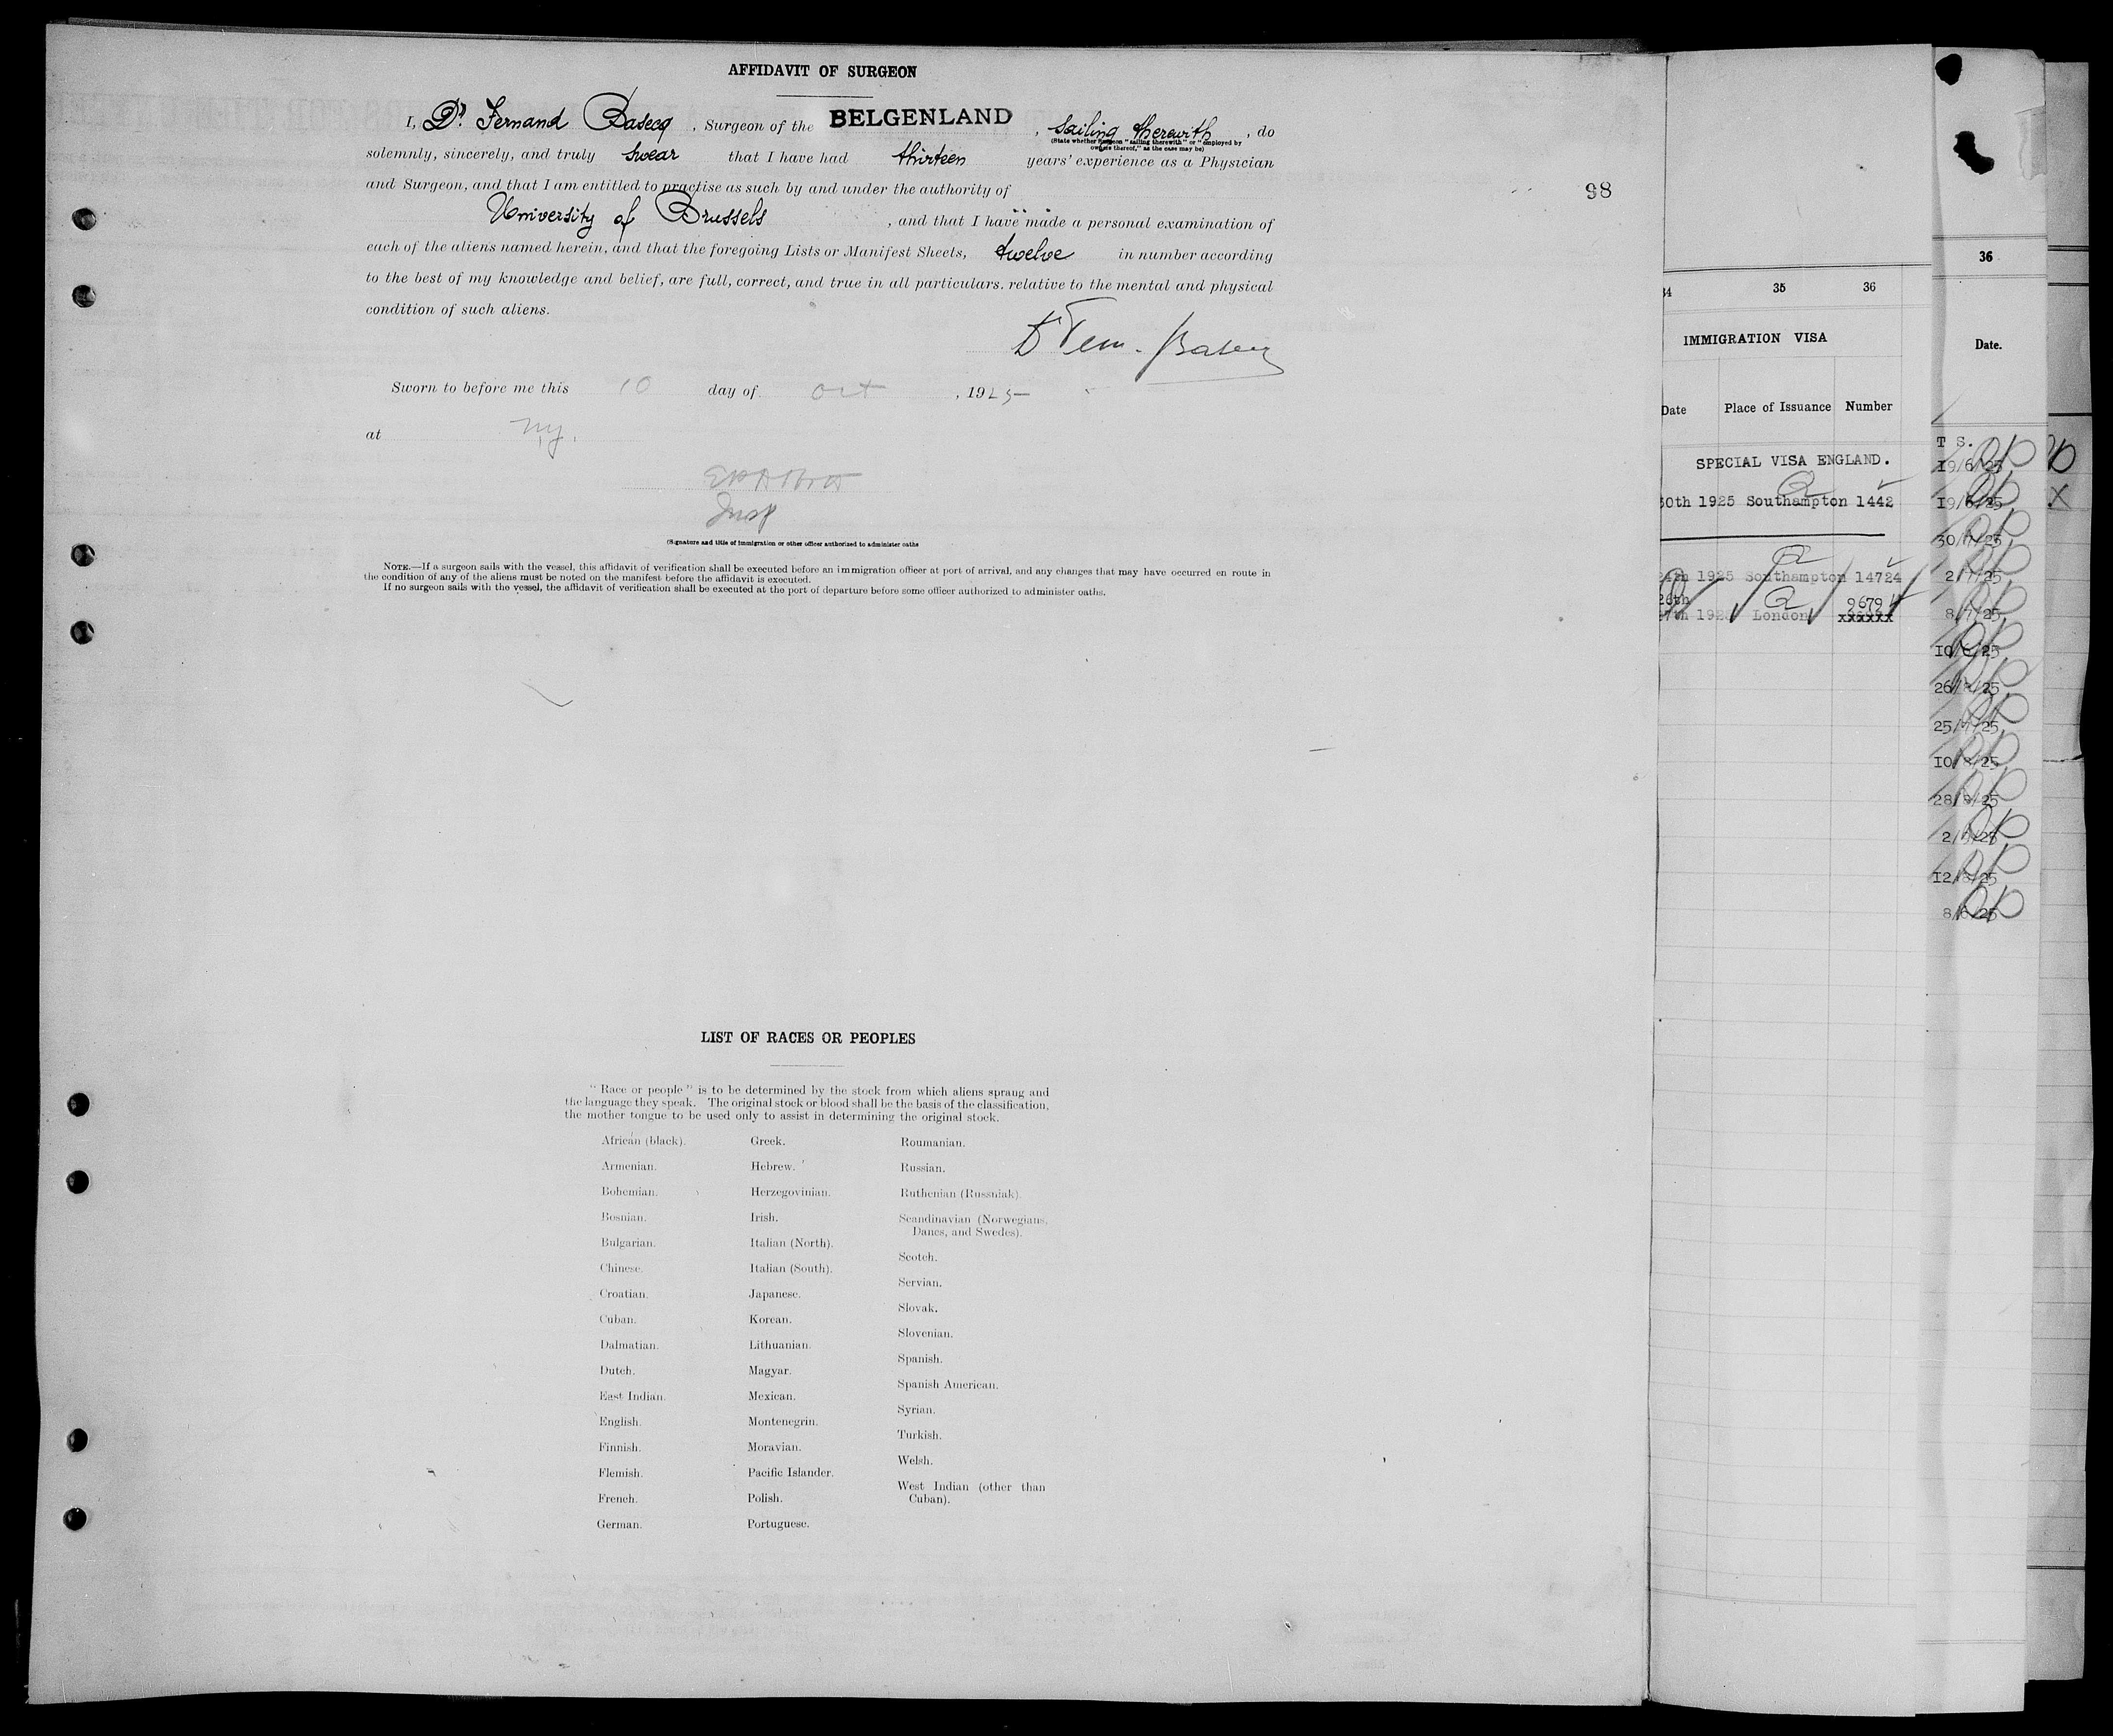 AFFIDAVIT OF SURGEON
I, Dr Fernand Basecq, Surgeon of the BELGENLAND, sailing therewith, do
(State whether Surgeon "sailing therewith" or "employed by
owners thereof," as the case may be)
solemnly, sincerely, and truly swear that I have had thirteen years' experience as a Physician
and Surgeon, and that I am entitled to practise as such by and under the authority of
98
University of Brussels, and that I have made a personal examination of
each of the aliens named herein, and that the foregoing Lists or Manifest Sheets, twelve in number according
to the best of my knowledge and belief, are full, correct, and true in all particulars. relative to the mental and physical
condition of such aliens.
Dr Fern. Basecq
Sworn to before me this 10 day of Oct, 1925
at N.Y.
Insp
(Signature and title of immigration or other officer authorized to administer oaths
NOTE.—If a surgeon sails with the vessel, this affidavit of verification shall be executed before an immigration officer at port of arrival, and any changes that may have occurred en route in
the condition of any of the aliens must be noted on the manifest before the affidavit is executed.
If no surgeon sails with the vessel, the affidavit of verification shall be executed at the port of departure before some officer authorized to administer oaths.
LIST OF RACES OR PEOPLES
"Race or people" is to be determined by the stock from which aliens sprang and
the language they speak. The original stock or blood shall be the basis of the classification,
the mother tongue to be used only to assist in determining the original stock.
African (black).
Armenian.
Bohemian.
Bosnian.
Bulgarian.
Chinese.
Croatian.
Cuban.
Dalmatian.
Dutch.
East Indian.
English.
Finnish.
Flemish.
French.
German.
Greek.
Hebrew.
Herzegovinian.
Irish.
Italian (North).
Italian (South).
Japanese.
Korean.
Lithuanian.
Magyar.
Mexican.
Montenegrin.
Moravian.
Pacific Islander.
Polish.
Portuguese.
Roumanian.
Russian.
Ruthenian (Russniak).
Scandinavian (Norwegians,
Danes, and Swedes).
Scotch.
Servian.
Slovak.
Slovenian.
Spanish.
Spanish American.
Syrian.
Turkish.
Welsh.
West Indian (other than
Cuban).
34 35 36
IMMIGRATION VISA
Date Place of Issuance Number
SPECIAL VISA ENGLAND.
30th 1925 Southampton 1442
24th 1925 Southampton 14724
26th 9679
27th 1925 London xxxxxx
36
Date.
T S.
19/6/25
19/6/25
30/7/25
2/7/25
8/7/25
10/8/25
26/8/25
25/7/25
10/8/25
28/8/25
2/9/25
12/8/25
8/6/25
X